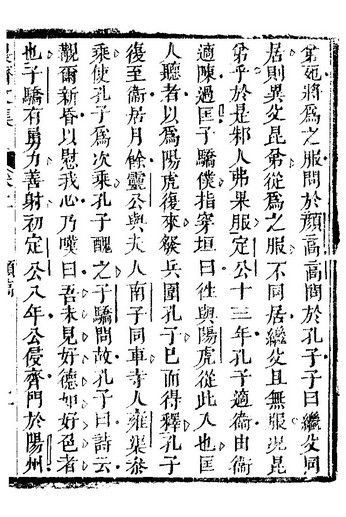 弟死將爲之服問於顏高高問於孔子子曰繼父同
居則異父昆弟從爲之服不同居繼父且無服況昆
弟乎於是邾人弗果服定公十三年孔子適衞由衞
適陳過匡子驕僕指穿垣曰往與陽虎從此入也匡
人聽者以爲陽虎復來發兵圍孔子已而得釋孔子
復至衞居月餘靈公與夫人南子同車寺人雍渠參
乘使孔子爲次乘孔子醜之子驕問故孔子曰詩云
覯爾新昏以慰我心乃嘆曰吾未見好德如好色者
也子驕有勇力善射初定公八年公侵齊門於陽州